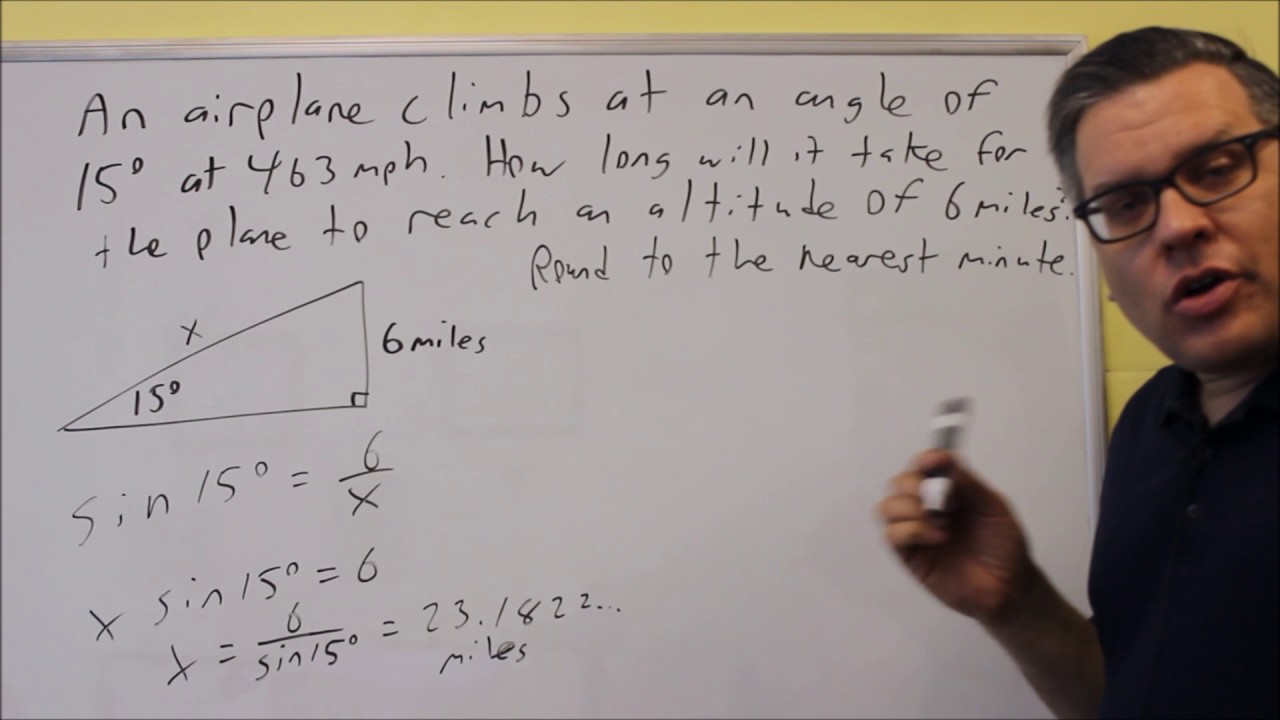 An airplane climbs at an angle of
15° at 463 mph. How long will it take for
the plane to reach an altitude of 6 miles?
Round to the nearest minute.
x
6 miles
15°
sin 15° = 6/x
x sin 15° = 6
x = 6/sin 15° = 23.1822...
miles